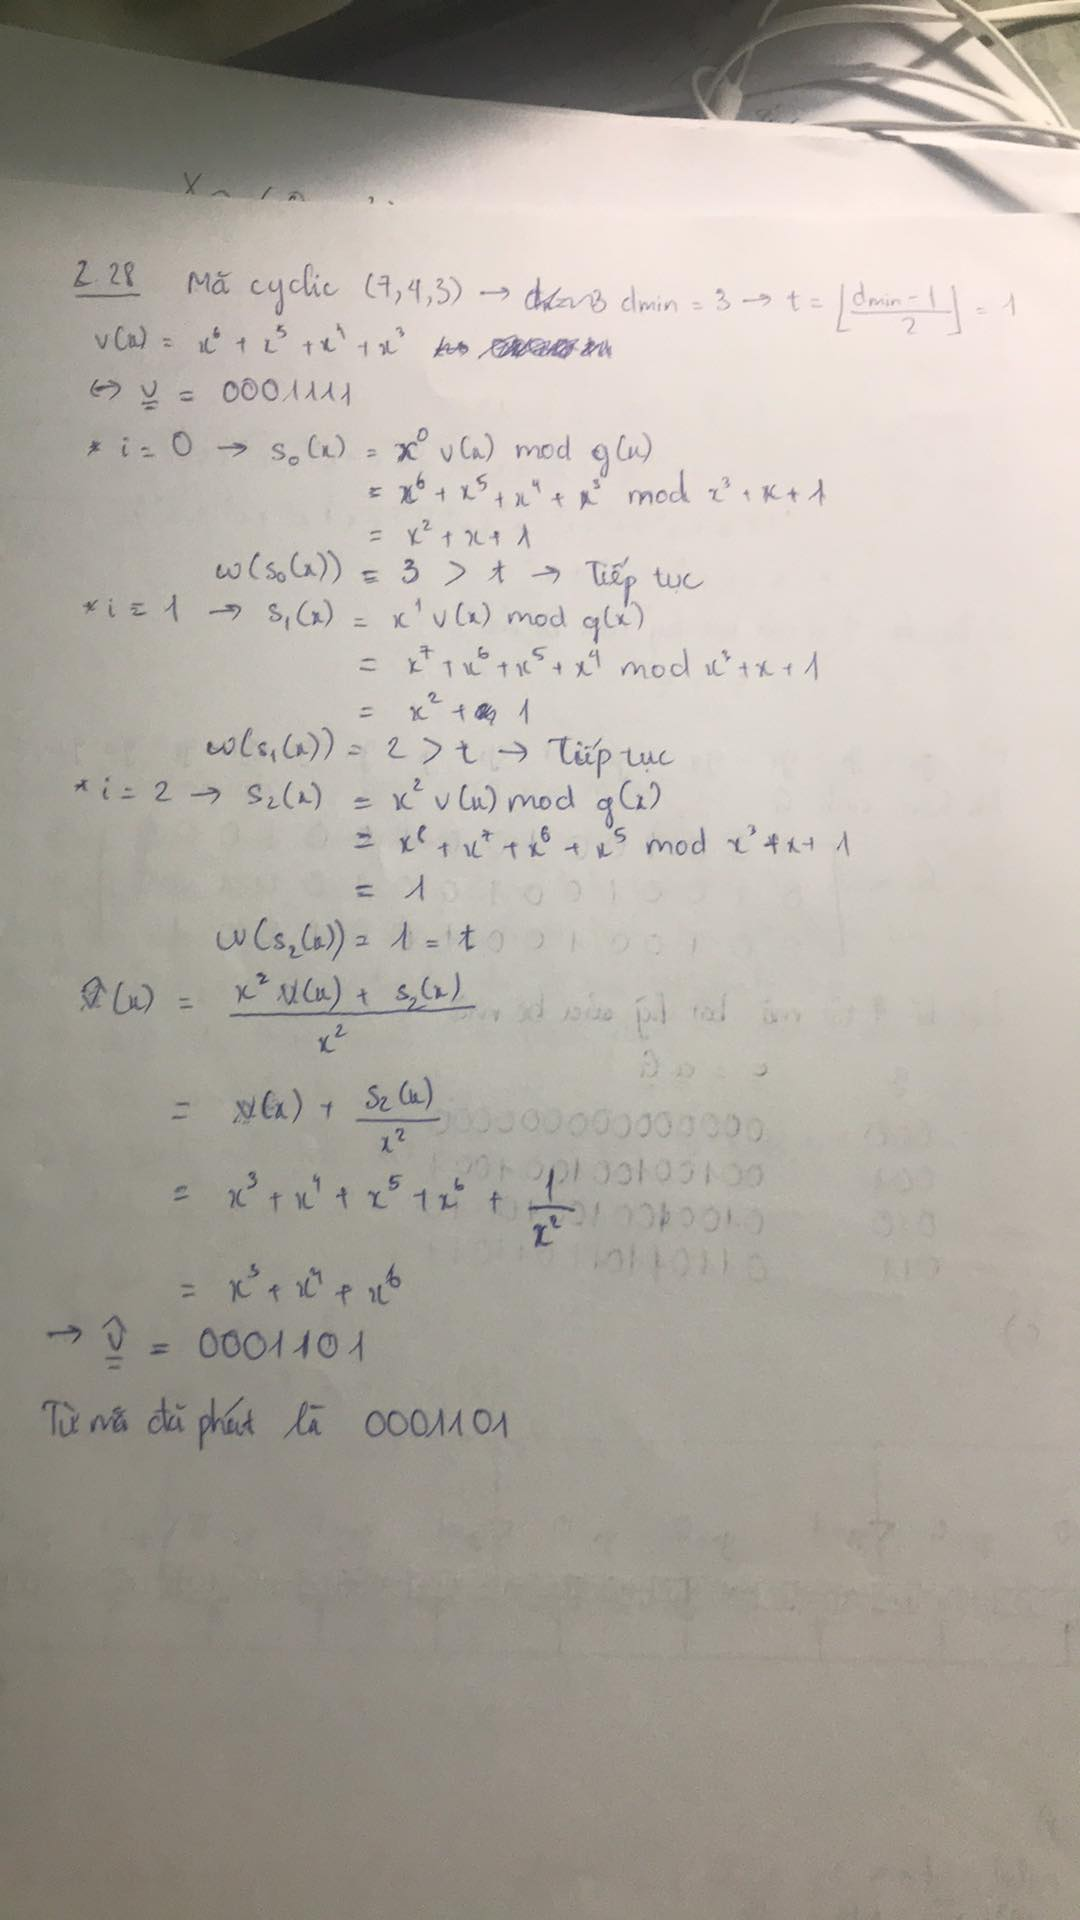 2.28 Mã cyclic (7,4,3) → dmin = 3 → t = ⌊(dmin - 1)/2⌋ = 1
v(x) = x⁶ + x⁵ + x⁴ + x³
↔ v = 0001111
* i = 0 → s₀(x) = x⁰ v(x) mod g(x)
= x⁶ + x⁵ + x⁴ + x³ mod x³ + x + 1
= x² + x + 1
w(s₀(x)) = 3 > t → Tiếp tục
* i = 1 → s₁(x) = x¹ v(x) mod g(x)
= x⁷ + x⁶ + x⁵ + x⁴ mod x³ + x + 1
= x² + 1
w(s₁(x)) = 2 > t → Tiếp tục
* i = 2 → s₂(x) = x² v(x) mod g(x)
= x⁸ + x⁷ + x⁶ + x⁵ mod x³ + x + 1
= 1
w(s₂(x)) = 1 = t
v̂(x) = (x² v(x) + s₂(x))/x²
= v(x) + s₂(x)/x²
= x³ + x⁴ + x⁵ + x⁶ + 1/x²
= x³ + x⁴ + x⁶
→ v̂ = 0001101
Từ mã đã phát là 0001101